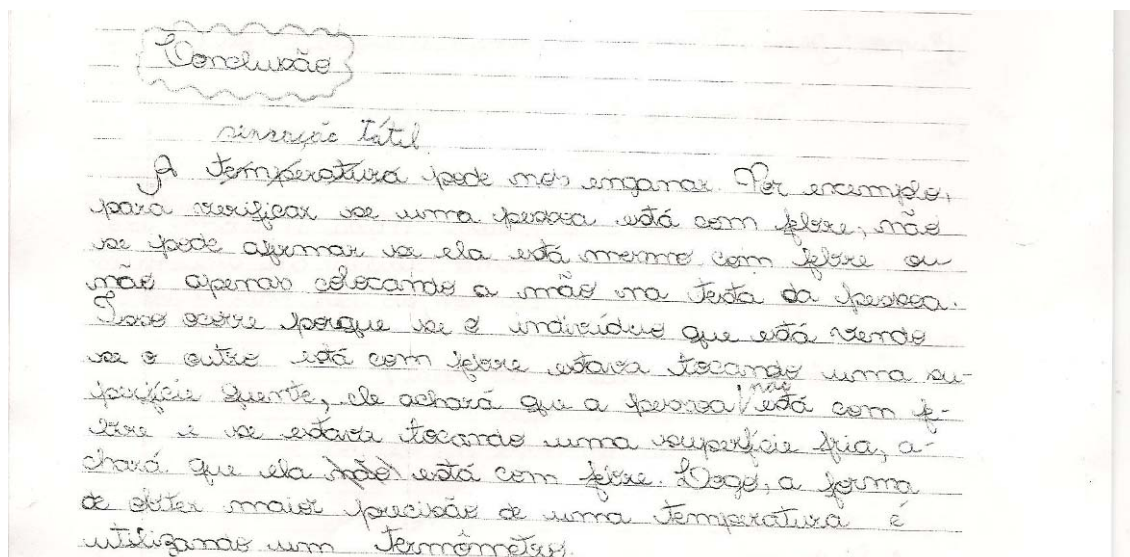 Conclusão
sensação tátil
A temperatura pode nos enganar. Por exemplo,
para verificar se uma pessoa está com febre, não
se pode afirmar se ela está mesmo com febre ou
não apenas colocando a mão na testa da pessoa.
Isso ocorre porque se o indivíduo que está vendo
se o outro está com febre estava tocando uma su-
perfície quente, ele achará que a pessoa não está com fe-
bre e se estava tocando uma superfície fria, a-
chará que ela (não) está com febre. Logo, a forma
de obter maior precisão de uma temperatura é
utilizando um termômetro.